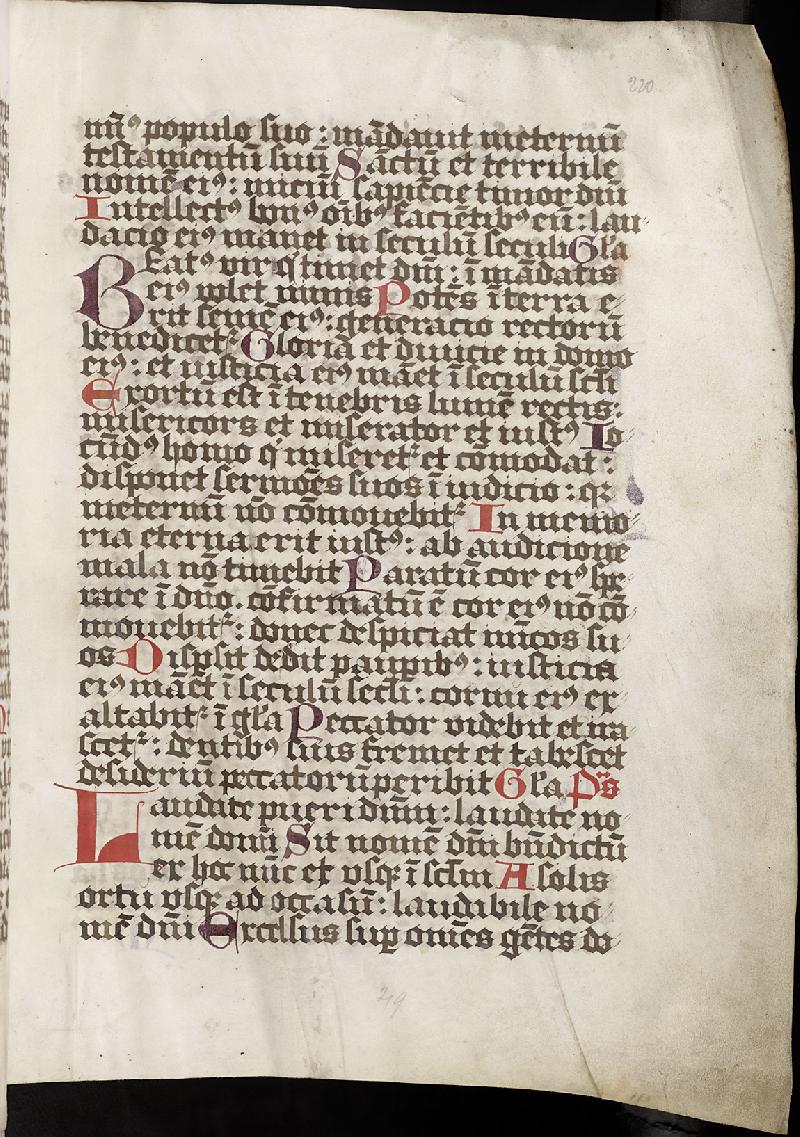 220
nūꝰ populo suo : mādauit ineternū
testamentū suū Sāctū et terribile
nomē eiꝰ : iniciū sapiēcie timor dm̄
Intellectꝰ bonꝰ oīb⁹ faciētib⁹ eū : lau
dacio eiꝰ manet in seculū seculi Gl'a
Beatꝰ vir q' timet dm̄ : ī mādatis
eiꝰ volet nimis Potēs ī terra e
rit semē eiꝰ : generacio rectorū
benedicet᷑ Gloria et diuicie in domo
eiꝰ : et iusticia eiꝰ māet ī seculū sc̄li
Exortū est ī tenebris lumē rectis :
misericors et miserator et iustꝰ Io
cūdꝰ homo q' miseret᷑ et cōmodat :
disponet sermōes suos ī iudicio : qꝫ
ineternū nō cōmouebit᷑ In memo
ria eterna erit iustꝰ : ab audicione
mala nō timebit Paratū cor eiꝰ spe
rare ī dn̄o . cōfirmatū ē cor eiꝰ nō cō
mouebit᷑ : donec despiciat inīcos su
os Disꝑsit dedit pauꝑibꝰ : iusticia
eiꝰ māet ī seculū secl̄i : cornu eiꝰ ex
altabit᷑ ī gl'a Peccator videbit et ira
scet᷑ : dentibꝰ suis fremet et tabescet
desideriū peccatorū peribit Gl'a p̄s
Laudate pueri dn̄m : laudate no
mē domī Sit nomē dn̄i bn̄dictū
ex hoc nūc et vsqꝫ ī scl̄m A solis
ortu vsqꝫ ad occasū : laudibile no
mē dn̄i Excelsus suꝑ om̄es gētes do
219